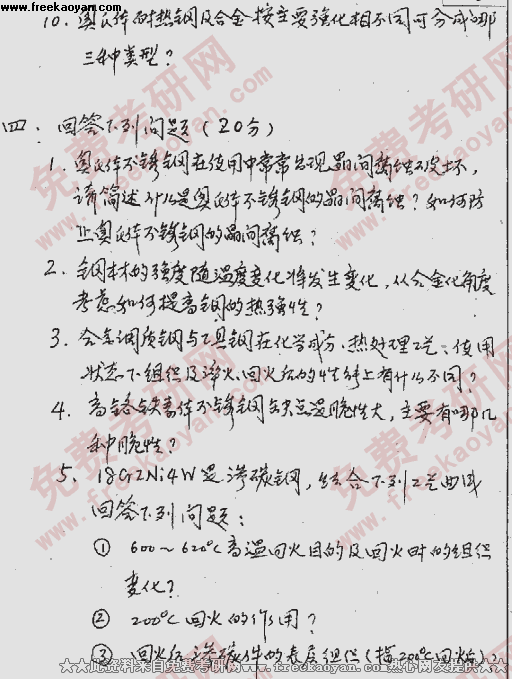 www.freekaoyan.com
10. 奥氏体耐热钢及合金按主要强化相不同可分成哪
三种类型？
四、回答下列问题（20分）
1. 奥氏体不锈钢在使用中常常出现晶间腐蚀破坏，
请简述什么是奥氏体不锈钢的晶间腐蚀？如何防
止奥氏体不锈钢的晶间腐蚀？
2. 钢材的强度随温度变化将发生变化，从合金化角度
考虑如何提高钢的热强性？
3. 合金调质钢与工具钢在化学成分、热处理工艺、使用
状态下组织及淬火、回火后的性能上有什么不同？
4. 高铬铁素体不锈钢缺点是脆性大，主要有哪几
种脆性？
5. 18Cr2Ni4W是渗碳钢，结合下列工艺曲线
回答下列问题：
① 600～620℃高温回火目的及回火时的组织
变化？
② 200℃回火的作用？
③ 回火后渗碳件的表层组织（指200℃回火后）？
★★此资料来自免费考研网www.freekaoyan.com热心网友提供★★
免费考研网
freekaoyan.com